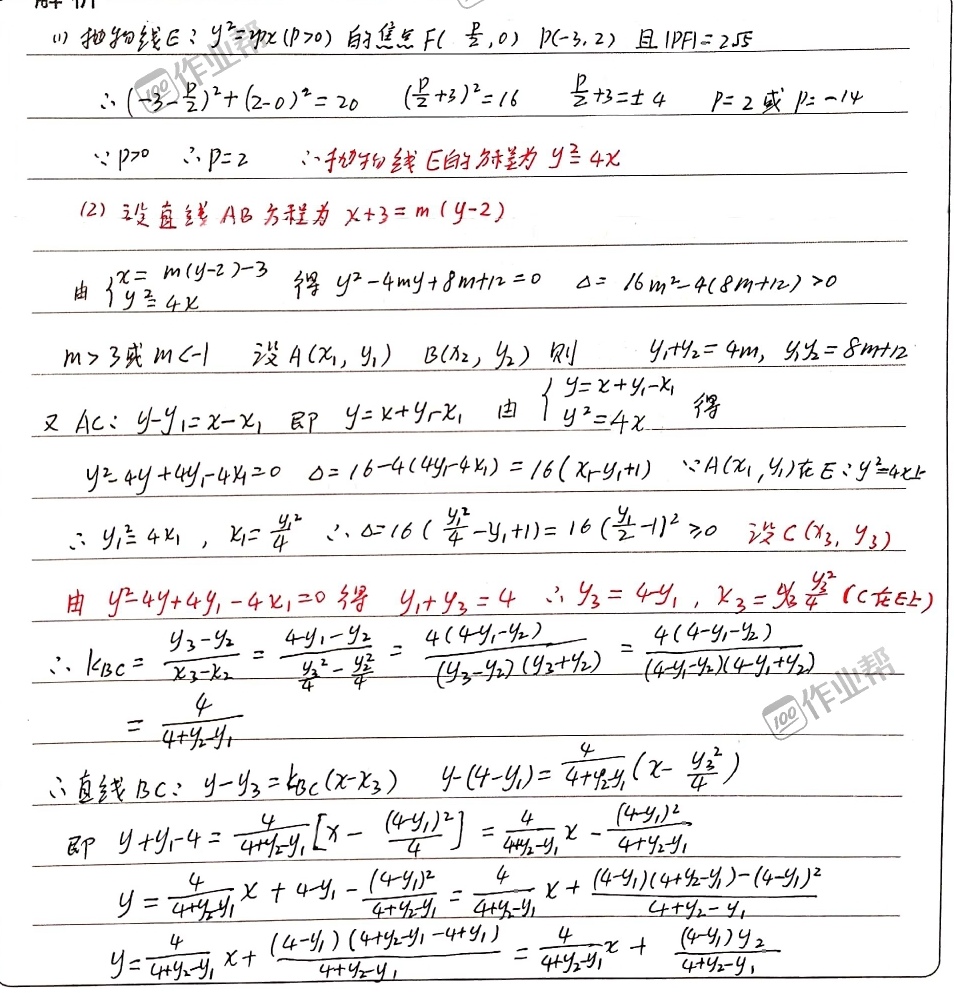 解析
(1) 抛物线E：y²=2px(p>0) 的焦点F(p/2,0) P(-3,2) 且|PF|=2√5
∴(-3-p/2)²+(2-0)²=20 (p/2+3)²=16 p/2+3=±4 p=2或p=-14
∵p>0 ∴p=2 ∴抛物线E的方程为 y²=4x
(2) 设直线AB方程为 x+3=m(y-2)
由{x=m(y-2)-3 y²=4x 得 y²-4my+8m+12=0 Δ=16m²-4(8m+12)>0
m>3或m<-1 设A(x₁,y₁) B(x₂,y₂) 则 y₁+y₂=4m, y₁y₂=8m+12
又AC：y-y₁=x-x₁ 即 y=x+y₁-x₁ 由{y=x+y₁-x₁ y²=4x 得
y²-4y+4y₁-4x₁=0 Δ=16-4(4y₁-4x₁)=16(x₁-y₁+1) ∵A(x₁,y₁)在E：y²=4x上
∴y₁²=4x₁, x₁=y₁²/4 ∴Δ=16(y₁²/4-y₁+1)=16(y₁/2-1)²≥0 设C(x₃,y₃)
由 y²-4y+4y₁-4x₁=0得 y₁+y₃=4 ∴y₃=4-y₁, x₃=y₃²/4 (C在E上)
∴k_BC=(y₃-y₂)/(x₃-x₂)=(4-y₁-y₂)/(y₃²/4-y₂²/4)=4(4-y₁-y₂)/((y₃-y₂)(y₃+y₂))=4(4-y₁-y₂)/((4-y₁-y₂)(4-y₁+y₂))
=4/(4+y₂-y₁)
∴直线BC：y-y₃=k_BC(x-x₃) y-(4-y₁)=4/(4+y₂-y₁)(x-y₃²/4)
即 y+y₁-4=4/(4+y₂-y₁)[x-(4-y₁)²/4]=4/(4+y₂-y₁)x-(4-y₁)²/(4+y₂-y₁)
y=4/(4+y₂-y₁)x+4-y₁-(4-y₁)²/(4+y₂-y₁)=4/(4+y₂-y₁)x+((4-y₁)(4+y₂-y₁)-(4-y₁)²)/(4+y₂-y₁)
y=4/(4+y₂-y₁)x+(4-y₁)(4+y₂-y₁-4+y₁)/(4+y₂-y₁)=4/(4+y₂-y₁)x+(4-y₁)y₂/(4+y₂-y₁)
100作业帮
100作业帮